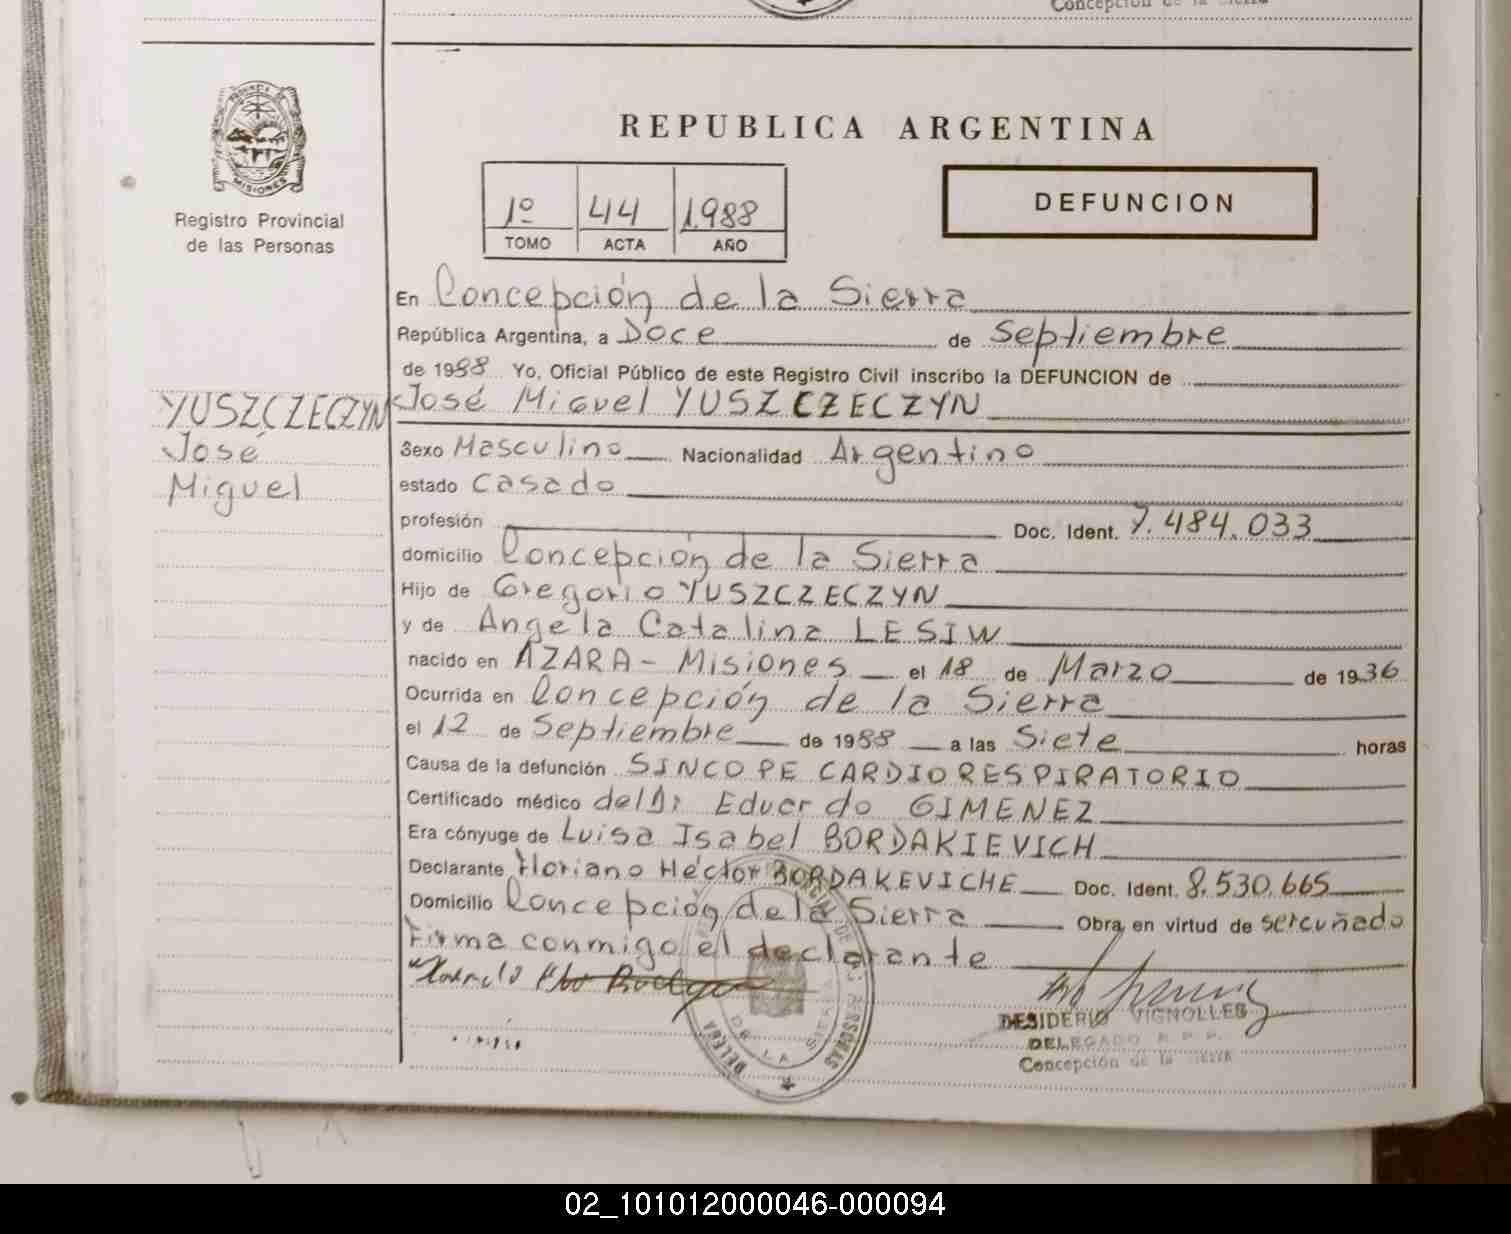 Concepción de la Sierra
PROVINCIA DE
MISIONES
Registro Provincial
de las Personas
REPUBLICA ARGENTINA
1º 44 1.988
TOMO ACTA AÑO
DEFUNCION
En Concepción de la Sierra
República Argentina, a Doce de Septiembre
de 1988 Yo, Oficial Público de este Registro Civil inscribo la DEFUNCION de
José Miguel YUSZCZECZYN
YUSZCZECZYN
José
Miguel
Sexo Masculino Nacionalidad Argentino
estado Casado
profesión Doc. Ident. 7.484.033
domicilio Concepción de la Sierra
Hijo de Gregorio YUSZCZECZYN
y de Angela Catalina LESIW
nacido en AZARA - Misiones el 18 de Marzo de 1936
Ocurrida en Concepción de la Sierra
el 12 de Septiembre de 1988 a las Siete horas
Causa de la defunción SINCOPE CARDIORESPIRATORIO
Certificado médico del Dr Eduardo GIMENEZ
Era cónyuge de Luisa Isabel BORDAKIEVICH
Declarante Floriano Héctor BORDAKEVICHE Doc. Ident. 8.530.665
Domicilio Concepción de la Sierra Obra en virtud de ser cuñado
Firma conmigo el declarante
DE LA SIERRA
DESIDERIO VIGNOLLES
DELEGADO R. P. P.
Concepción de la Sierra
02_101012000046-000094